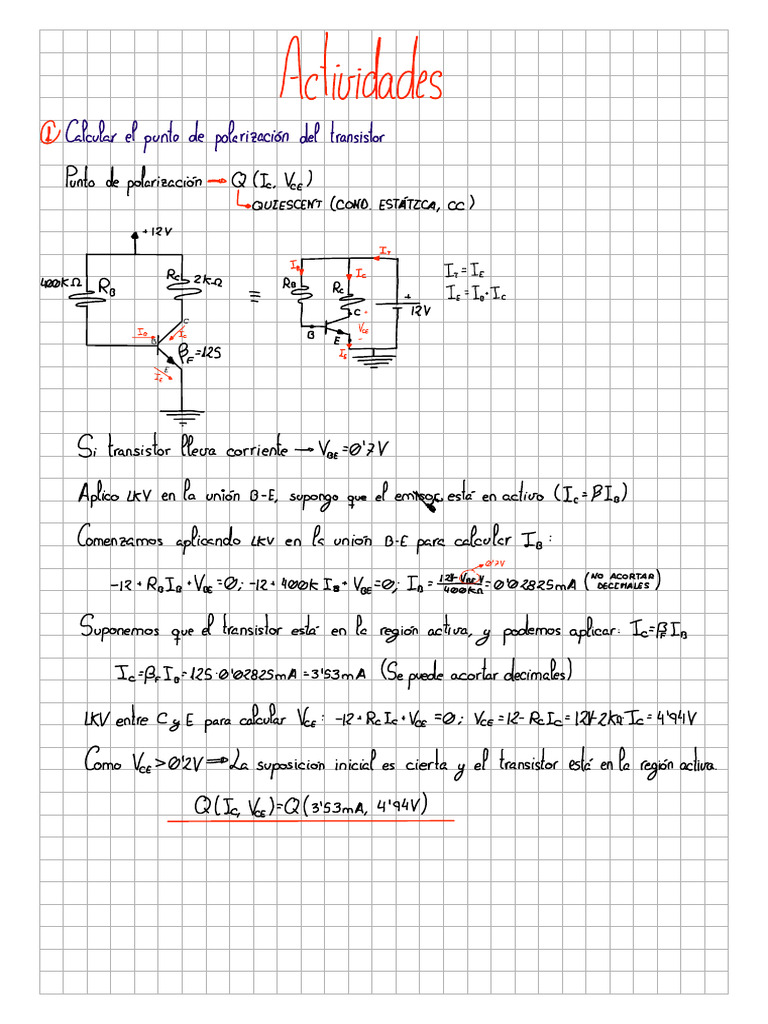 Actividades
① Calcular el punto de polarización del transistor
Punto de polarización → Q (Ic, VCE)
QUIESCENT (COND. ESTÁTICA, CC)
+12V
400KΩ RB
Rc 2kΩ
C
IB B Ic
βF=125
IE E
≡
IT
IB Ic
RB Rc
C +
+
12V
B VCE
E -
IE
IT = IE
IE = IB + IC
Si transistor lleva corriente → VBE = 0'7V
Aplico LKV en la unión B-E, supongo que el emisor está en activo (Ic = βIB)
Comenzamos aplicando LKV en la unión B-E para calcular IB :
0'7V
-12 + RBIB + VBE = 0; -12 + 400k IB + VBE = 0; IB = 12V-VBE V / 400KΩ = 0'02825mA (NO ACORTAR DECIMALES)
Suponemos que el transistor está en la región activa, y podemos aplicar: Ic = βF IB
Ic = βF IB = 125 · 0'02825mA = 3'53mA (Se puede acortar decimales)
LKV entre C y E para calcular VCE : -12 + RcIc + VCE = 0 ; VCE = 12 - RcIc = 12V - 2kΩ Ic = 4'94V
Como VCE > 0'2V ⇒ La suposicion inicial es cierta y el transistor está en la región activa.
Q(Ic, VCE) = Q(3'53mA, 4'94V)